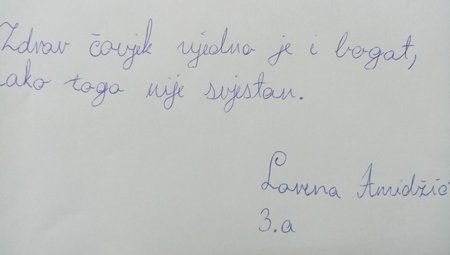 Zdrav čovjek ujedno je i bogat,
iako toga nije svjestan.
Lorena Amidžić
3.a